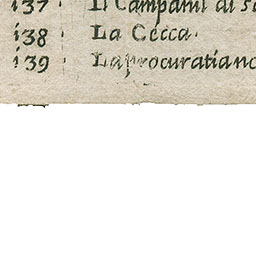 137 · Il Campanil di s
138 · La Cecca.
139 · La procuratia no